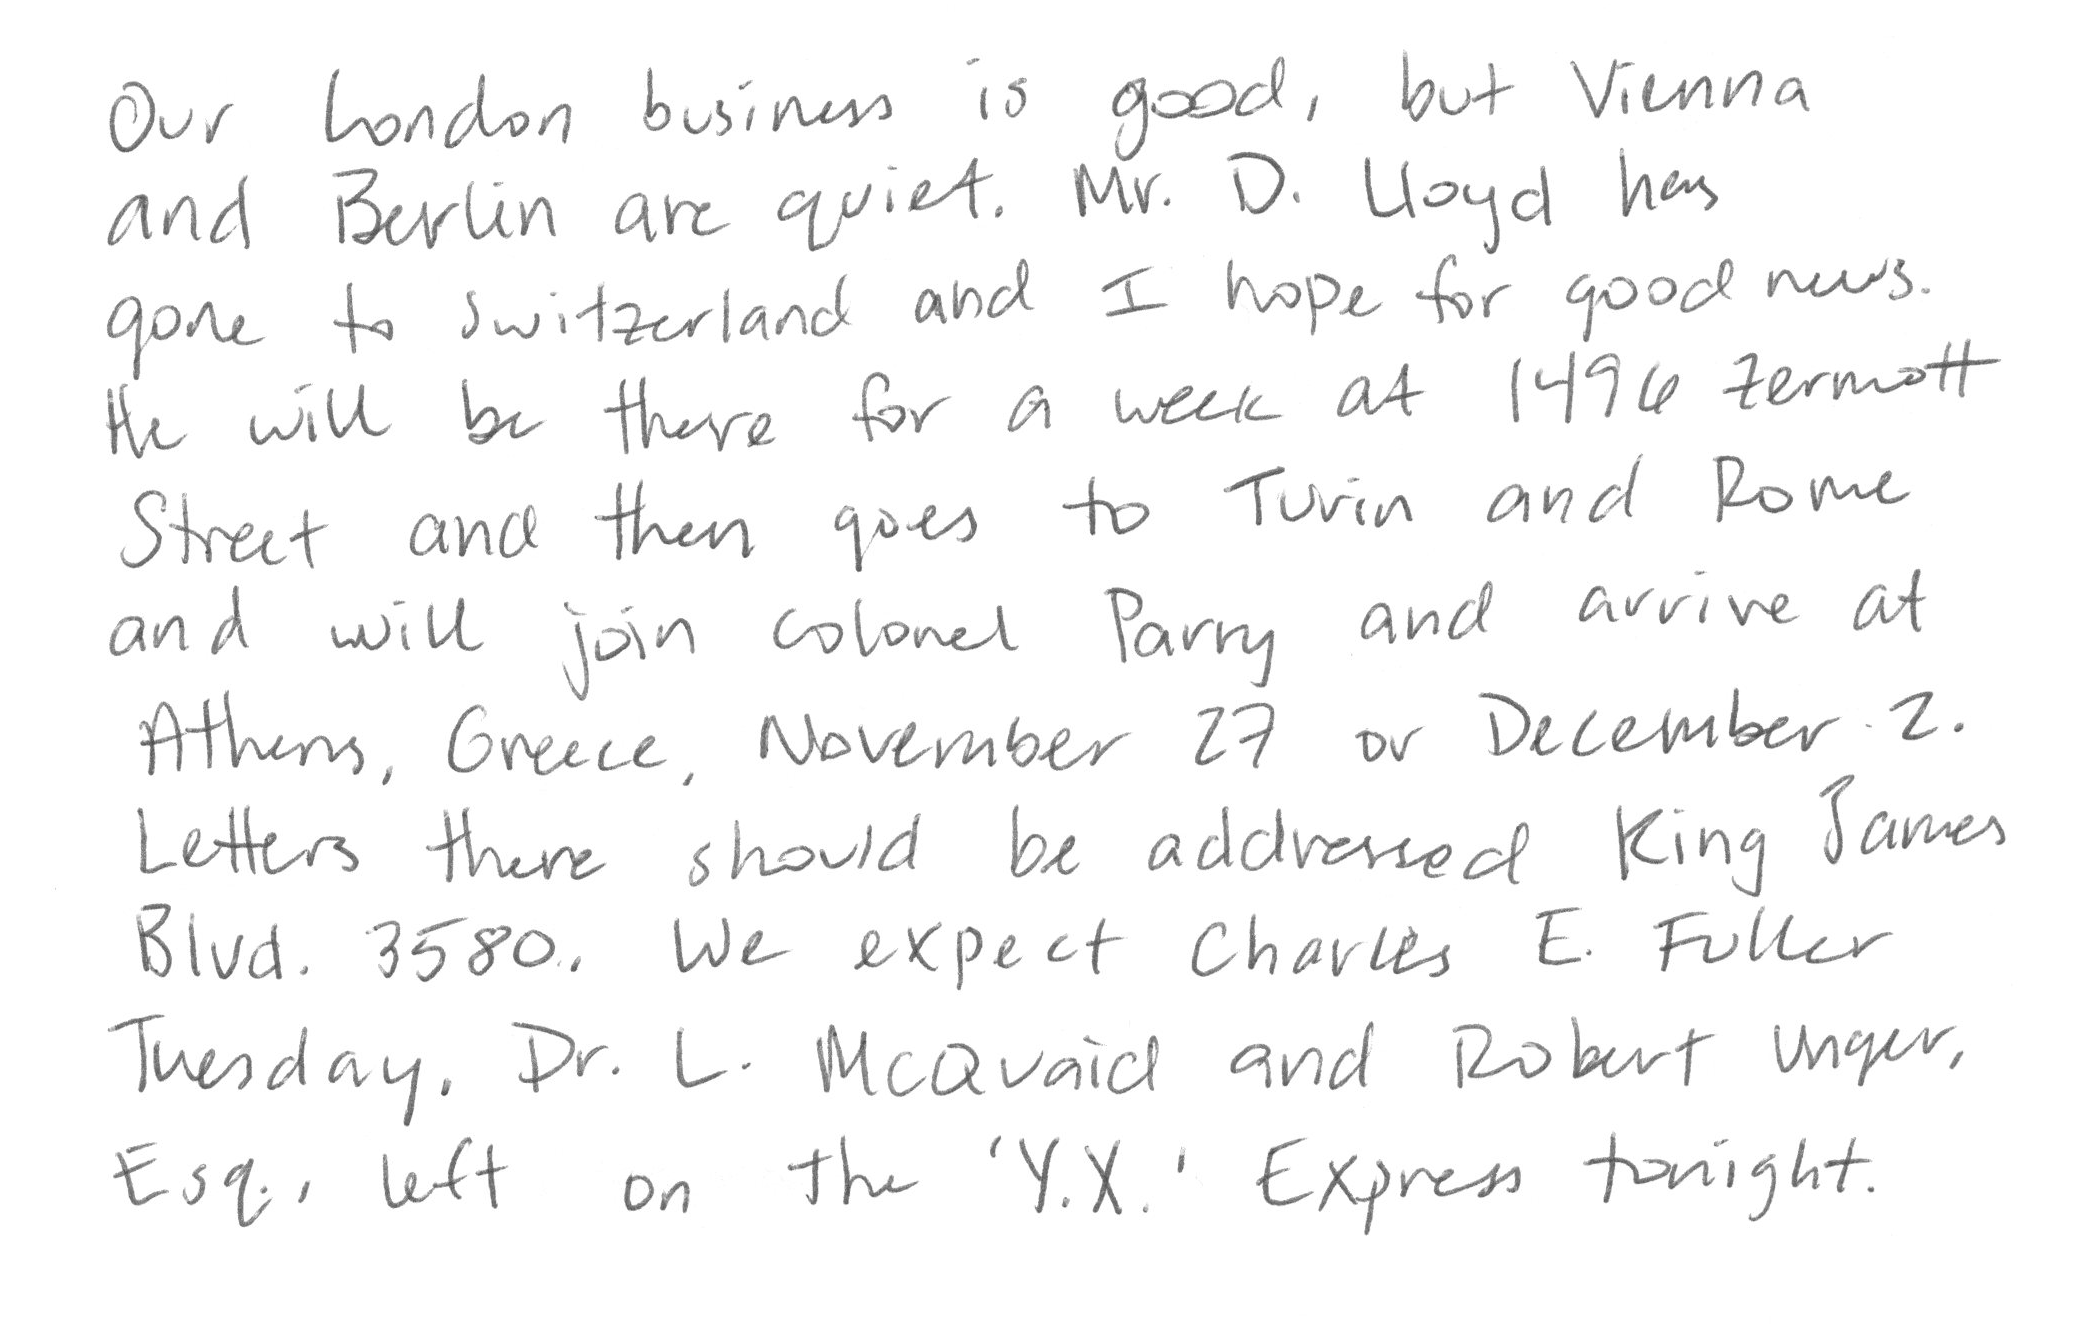 Our London business is good, but Vienna
and Berlin are quiet. Mr. D. Lloyd has
gone to Switzerland and I hope for good news.
He will be there for a week at 1496 Zermott
Street and then goes to Turin and Rome
and will join Colonel Parry and arrive at
Athens, Greece, November 27 or December 2.
Letters there should be addressed King James
Blvd. 3580. We expect Charles E. Fuller
Tuesday. Dr. L. McQuaid and Robert Unger,
Esq., left on the 'Y.X.' Express tonight.